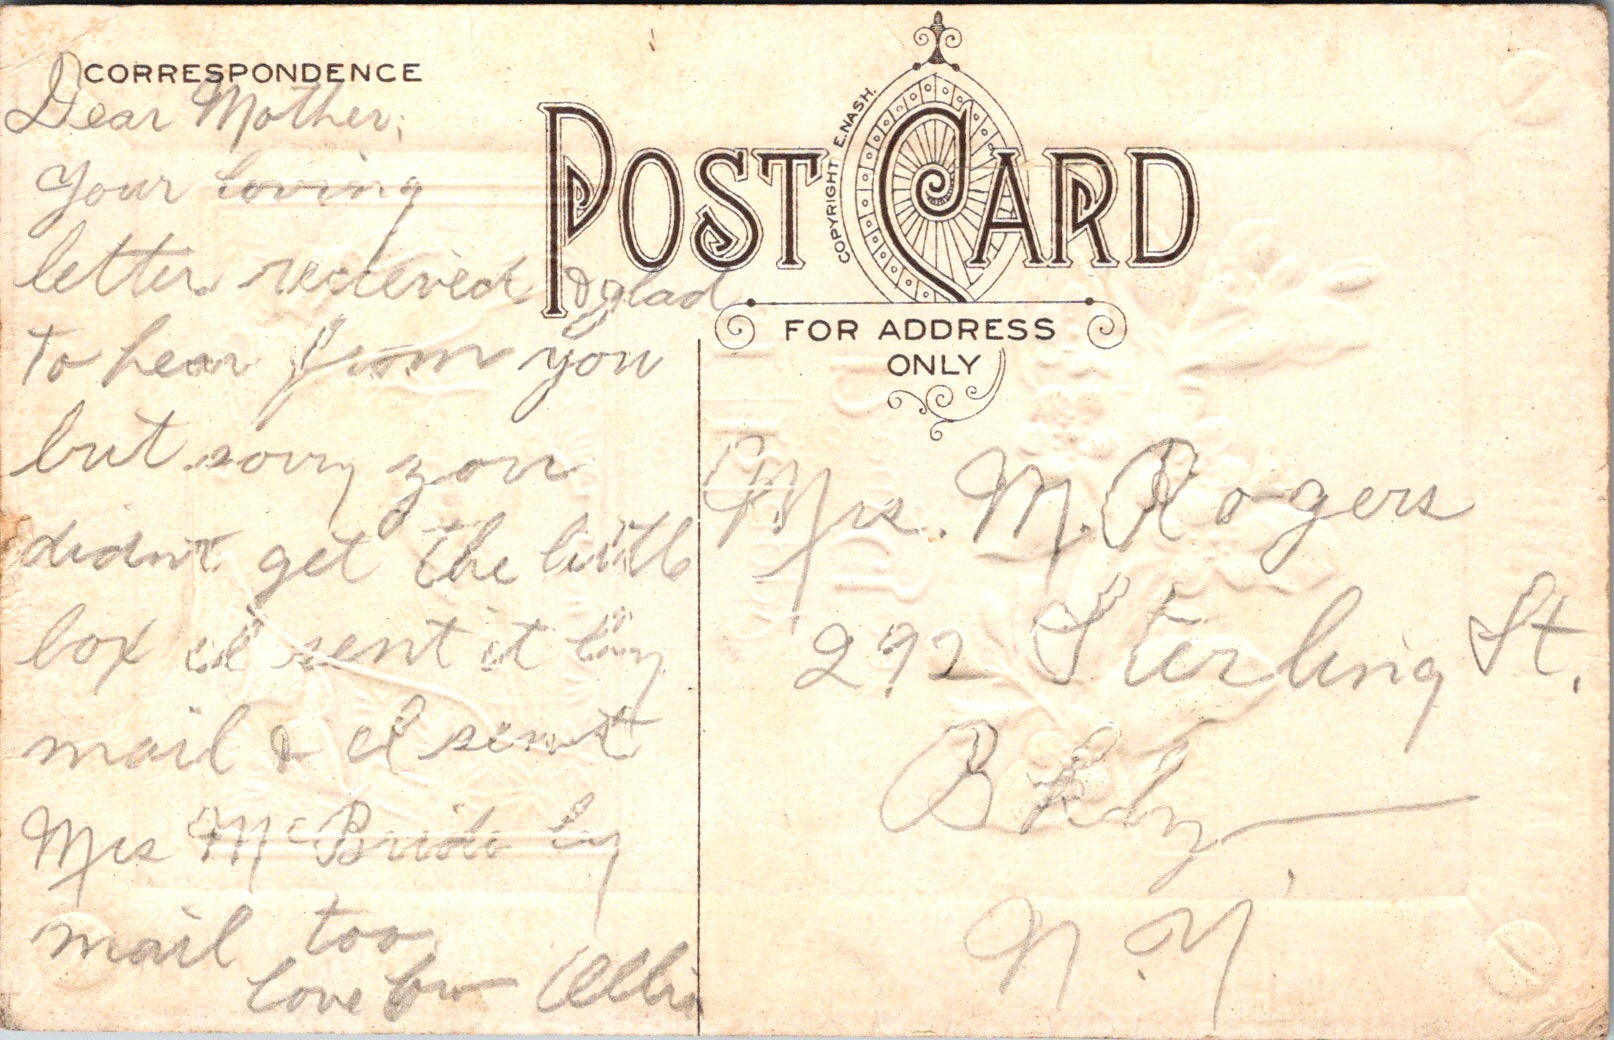 CORRESPONDENCE
Dear Mother,
Your loving
letter recieved & glad
to hear from you
but sorry you
didn't get the little
box I sent it by
mail & I sent
Mrs McBride by
mail too
love
POST CARD
COPYRIGHT E. NASH.
FOR ADDRESS
ONLY
Mrs. M. Rogers
292 Sterling St.
Bkly
N.Y.